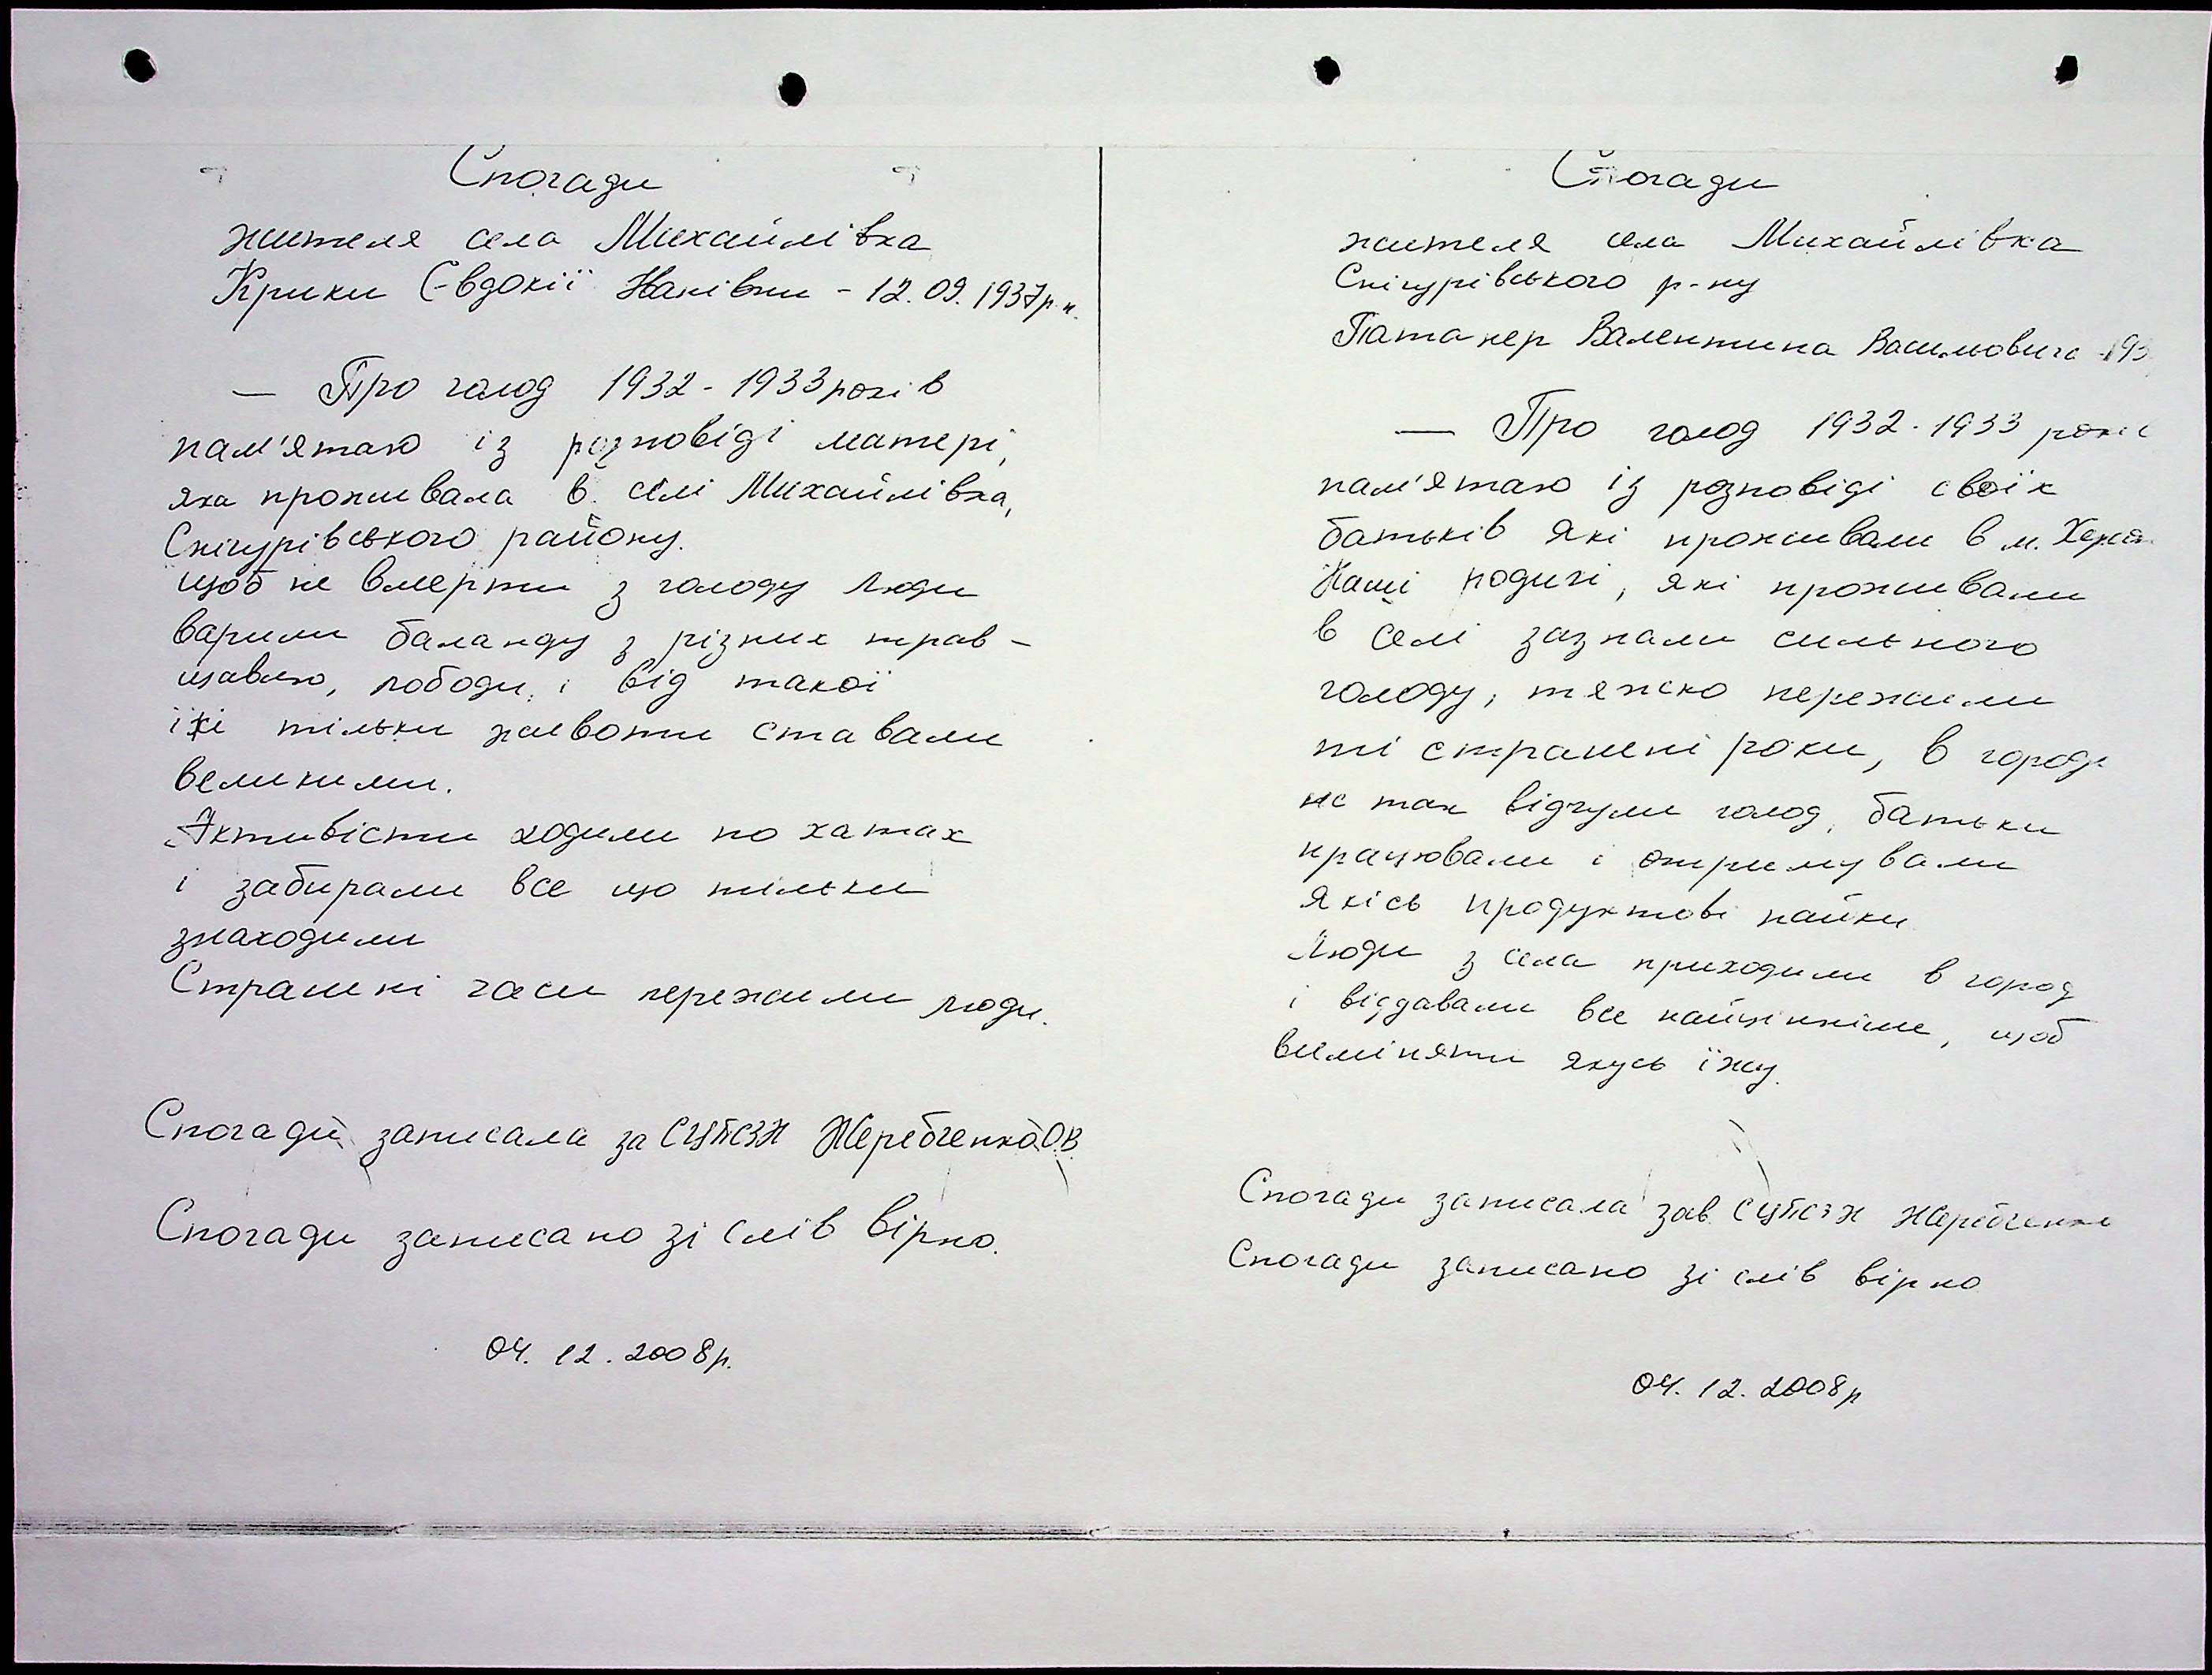 Спогади
жителя села Михайлівка
Крики Євдокії Іванівни - 12.09.1937р.н.
— Про голод 1932-1933 років
пам'ятаю із розповіді матері,
яка проживала в селі Михайлівка,
Снігурівського району.
щоб не вмерти з голоду люди
варили баланду з різних трав -
щавлю, лободи, і від такої
їжі тільки животи ставали
великими.
Активісти ходили по хатах
і забирали все що тільки
знаходили
Страшні часи пережили люди.
Спогади записала за СЦПСЗН Жеребченко О.В.
Спогади записано зі слів вірно.
04.12.2008р.
Спогади
жителя села Михайлівка
Снігурівського р-ну
Валентина Васильовича - 193
— Про голод 1932-1933 роки
пам'ятаю із розповіді своїх
батьків які проживали в м. Херсон
Наші родичі, які проживали
в селі зазнали сильного
голоду, тяжко пережили
ті страшні роки, в городі
не так відчули голод, батьки
працювали і отримували
якісь продуктові пайки
Люди з села приходили в город
і віддавали все найцінніше, щоб
виміняти якусь їжу.
Спогади записала зав. СЦПСЗН Жеребченко
Спогади записано зі слів вірно
04.12.2008р